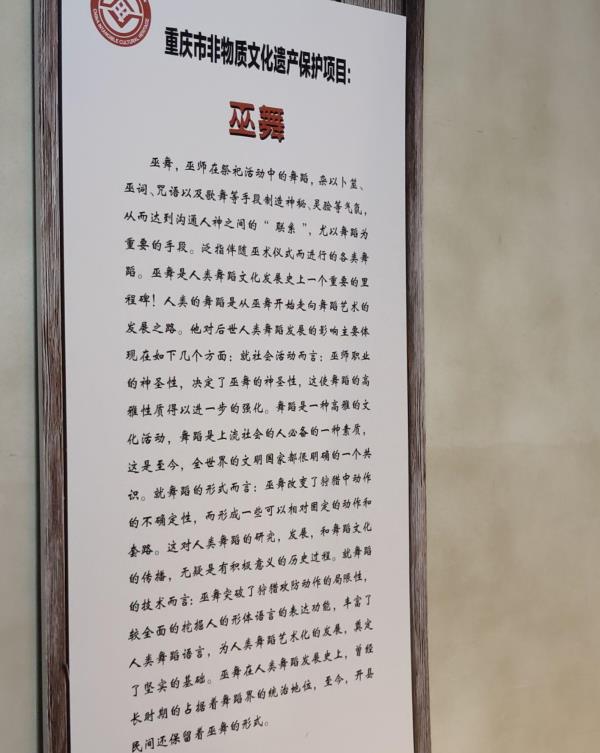 重庆市非物质文化遗产保护项目:
巫舞
巫舞，巫师在祭祀活动中的舞蹈，杂以卜筮、
巫词、咒语以及歌舞等手段制造神秘、灵验等气氛，
从而达到沟通人神之间的“联系”，尤以舞蹈为
重要的手段。泛指伴随巫术仪式而进行的各类舞
蹈。巫舞是人类舞蹈文化发展史上一个重要的里
程碑！人类的舞蹈是从巫舞开始走向舞蹈艺术的
发展之路。他对后世人类舞蹈发展的影响主要体
现在如下几个方面：就社会活动而言：巫师职业
的神圣性，决定了巫舞的神圣性，这使舞蹈的高
雅性质得以进一步的强化。舞蹈是一种高雅的文
化活动，舞蹈是上流社会的人必备的一种素质，
这是至今，全世界的文明国家都很明确的一个共
识。就舞蹈的形式而言：巫舞改变了狩猎中动作
的不确定性，而形成一些可以相对固定的动作和
套路。这对人类舞蹈的研究，发展，和舞蹈文化
的传播，无疑是有积极意义的历史过程。就舞蹈
的技术而言：巫舞突破了狩猎攻防动作的局限性，
较全面的挖掘人的形体语言的表达功能，丰富了
人类舞蹈语言，为人类舞蹈艺术化的发展，奠定
了坚实的基础。巫舞在人类舞蹈发展史上，曾经
长时期的占据着舞蹈界的统治地位，至今，开县
民间还保留着巫舞的形式。